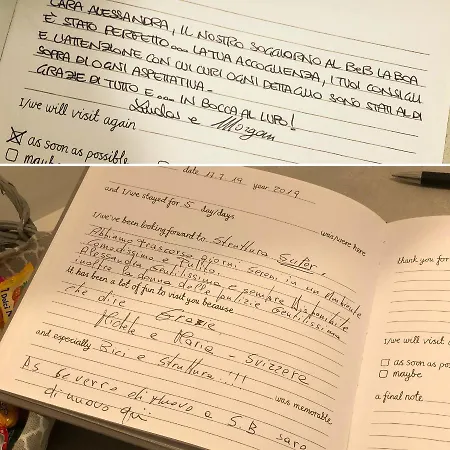 CARA ALESSANDRA, IL NOSTRO SOGGIORNO AL BeB LA BOA
È STATO PERFETTO... LA TUA ACCOGLIENZA, I TUOI CONSIGLI
E L'ATTENZIONE CON CUI CURI OGNI DETTAGLIO SONO STATI AL DI
SOPRA DI OGNI ASPETTATIVA.
GRAZIE DI TUTTO E... IN BOCCA AL LUPO!
e Morgan
I/we will visit again
as soon as possible
maybe
date 17.7.19 year 2019
and I/we stayed for 5 day/days
was/were here
I/we've been looking forward to Struttura Super,
Abbiamo trascorso giorni sereni in un Ambiente
Comodissimo e Pulito.
Alessandra Gentilissima e sempre disponibile
inoltre la donna delle pulizie Gentilissima
it has been a lot of fun to visit you because
che dire Grazie
e Maria - Svizzera
and especially Bici e Struttura!!!
was memorable
di nuovo e S.B sarò
di nuovo qui
thank you for
I/we will visit
as soon as pos
maybe
a final note